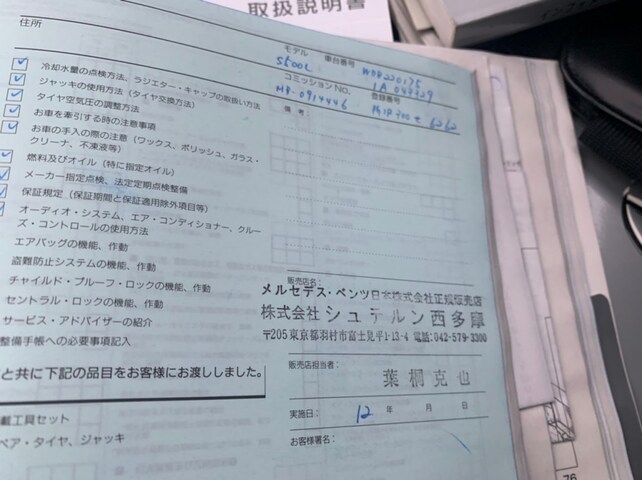 取扱説明書
住所
モデル 車台番号
S500L WDB220175
1A 047729
コミッションNO. 登録番号
MB-0914446
6262
備考
冷却水量の点検方法、ラジエター・キャップの取扱い方法
ジャッキの使用方法(タイヤ交換方法)
タイヤ空気圧の調整方法
お車を牽引する時の注意事項
お車の手入の際の注意(ワックス、ポリッシュ、ガラス・
クリーナ、不凍液等)
燃料及びオイル(特に指定オイル)
メーカー指定点検、法定定期点検整備
保証規定(保証期間と保証適用除外項目等)
オーディオ・システム、エア・コンディショナー、クルー
ズ・コントロールの使用方法
エアバッグの機能、作動
盗難防止システムの機能、作動
チャイルド・プルーフ・ロックの機能、作動
セントラル・ロックの機能、作動
サービス・アドバイザーの紹介
整備手帳への必要事項記入
と共に下記の品目をお客様にお渡ししました。
載工具セット
ペア・タイヤ、ジャッキ
販売店名:
メルセデス・ベンツ日本株式会社正規販売店
株式会社 シュテルン西多摩
〒205 東京都羽村市富士見平1-13-4 電話:042-579-3300
販売店担当者:
葉桐克也
実施日: 12 年 月 日
お客様署名:
76